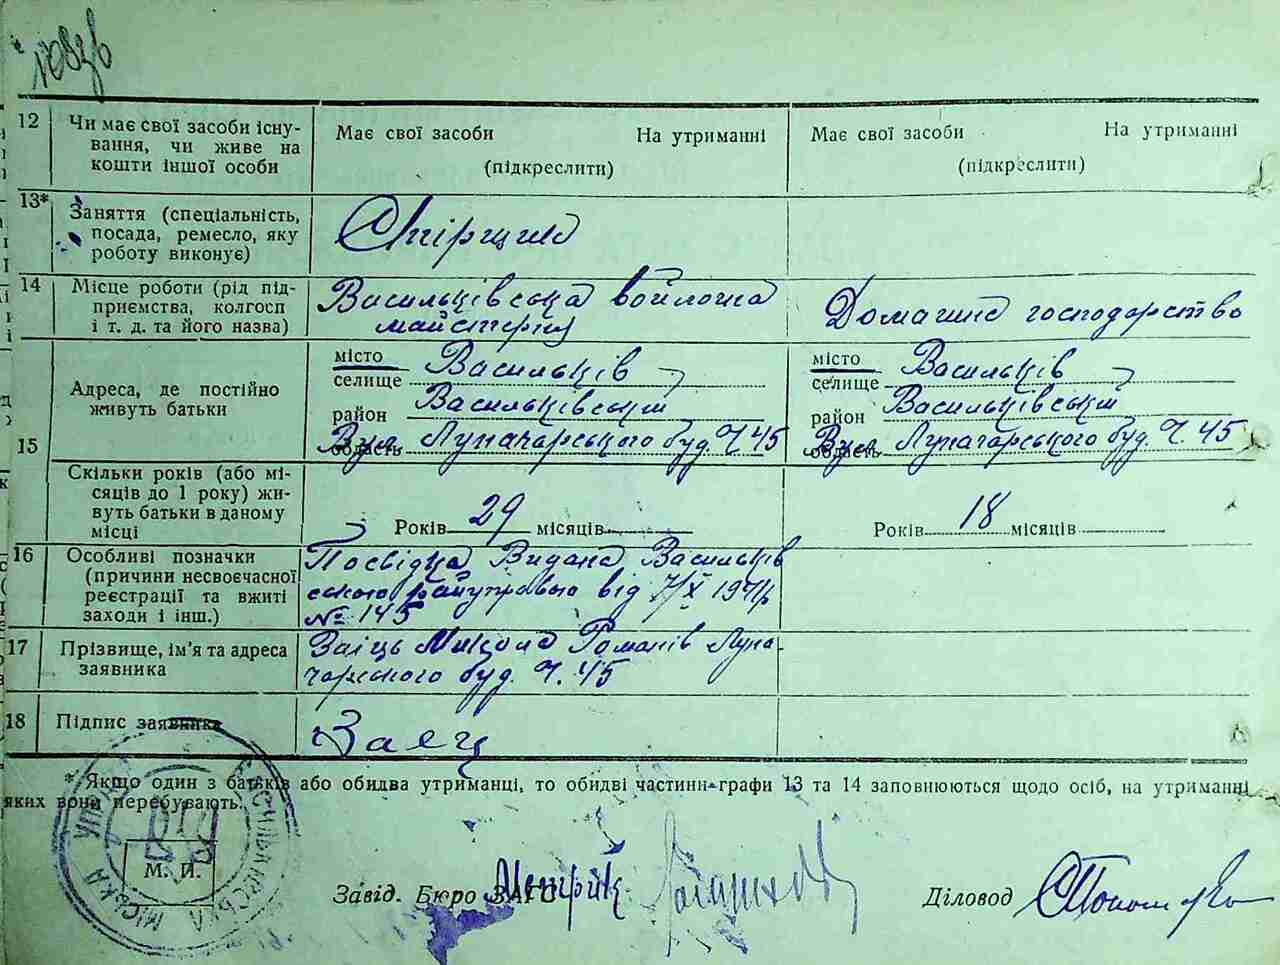 12 Чи має свої засоби існу-
вання, чи живе на
кошти іншої особи
Має свої засоби На утриманні
(підкреслити)
Має свої засоби На утриманні
(підкреслити)
13* Заняття (спеціальність,
посада, ремесло, яку
роботу виконує)
14 Місце роботи (рід під-
приємства, колгосп
і т. д. та його назва)
Васильківська войлочна
майстерня
Домашнє господарство
15 Адреса, де постійно
живуть батьки
місто Васильків
селище
район Васильківський
область Вул Луначарського буд. Ч. 45
місто Васильків
селище
район Васильківський
область Вул Луначарського буд. Ч. 45
Скільки років (або мі-
сяців до 1 року) жи-
вуть батьки в даному
місці
Років 29 місяців
Років 18 місяців
16 Особливі позначки
(причини несвоєчасної
реєстрації та вжиті
заходи і інш.)
Посвідка Видана Васильків
ською райуправою від 7/X 1941р
№ 145
17 Прізвище, ім'я та адреса
заявника
Заіць Микола Романів Луна-
чарського буд. Ч. 45
18 Підпис заявника
Заец
* Якщо один з батьків або обидва утриманці, то обидві частини графи 13 та 14 заповнюються щодо осіб, на утриманні
яких вони перебувають.
ВАСИЛЬКІВСЬКА МІСЬКА
М. П.
Завід. Бюро ЗАГС Метрик
Діловод